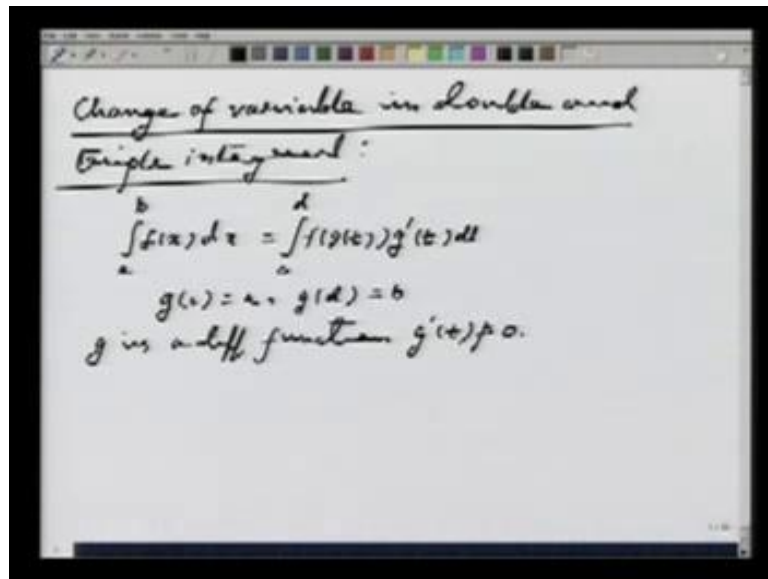 Change of variable in double and
Triple integral :
b d
∫f(x)dx = ∫f(g(t))g'(t)dt
a c
g(c) = a, g(d) = b
g is a diff function g'(t) ≠ 0.